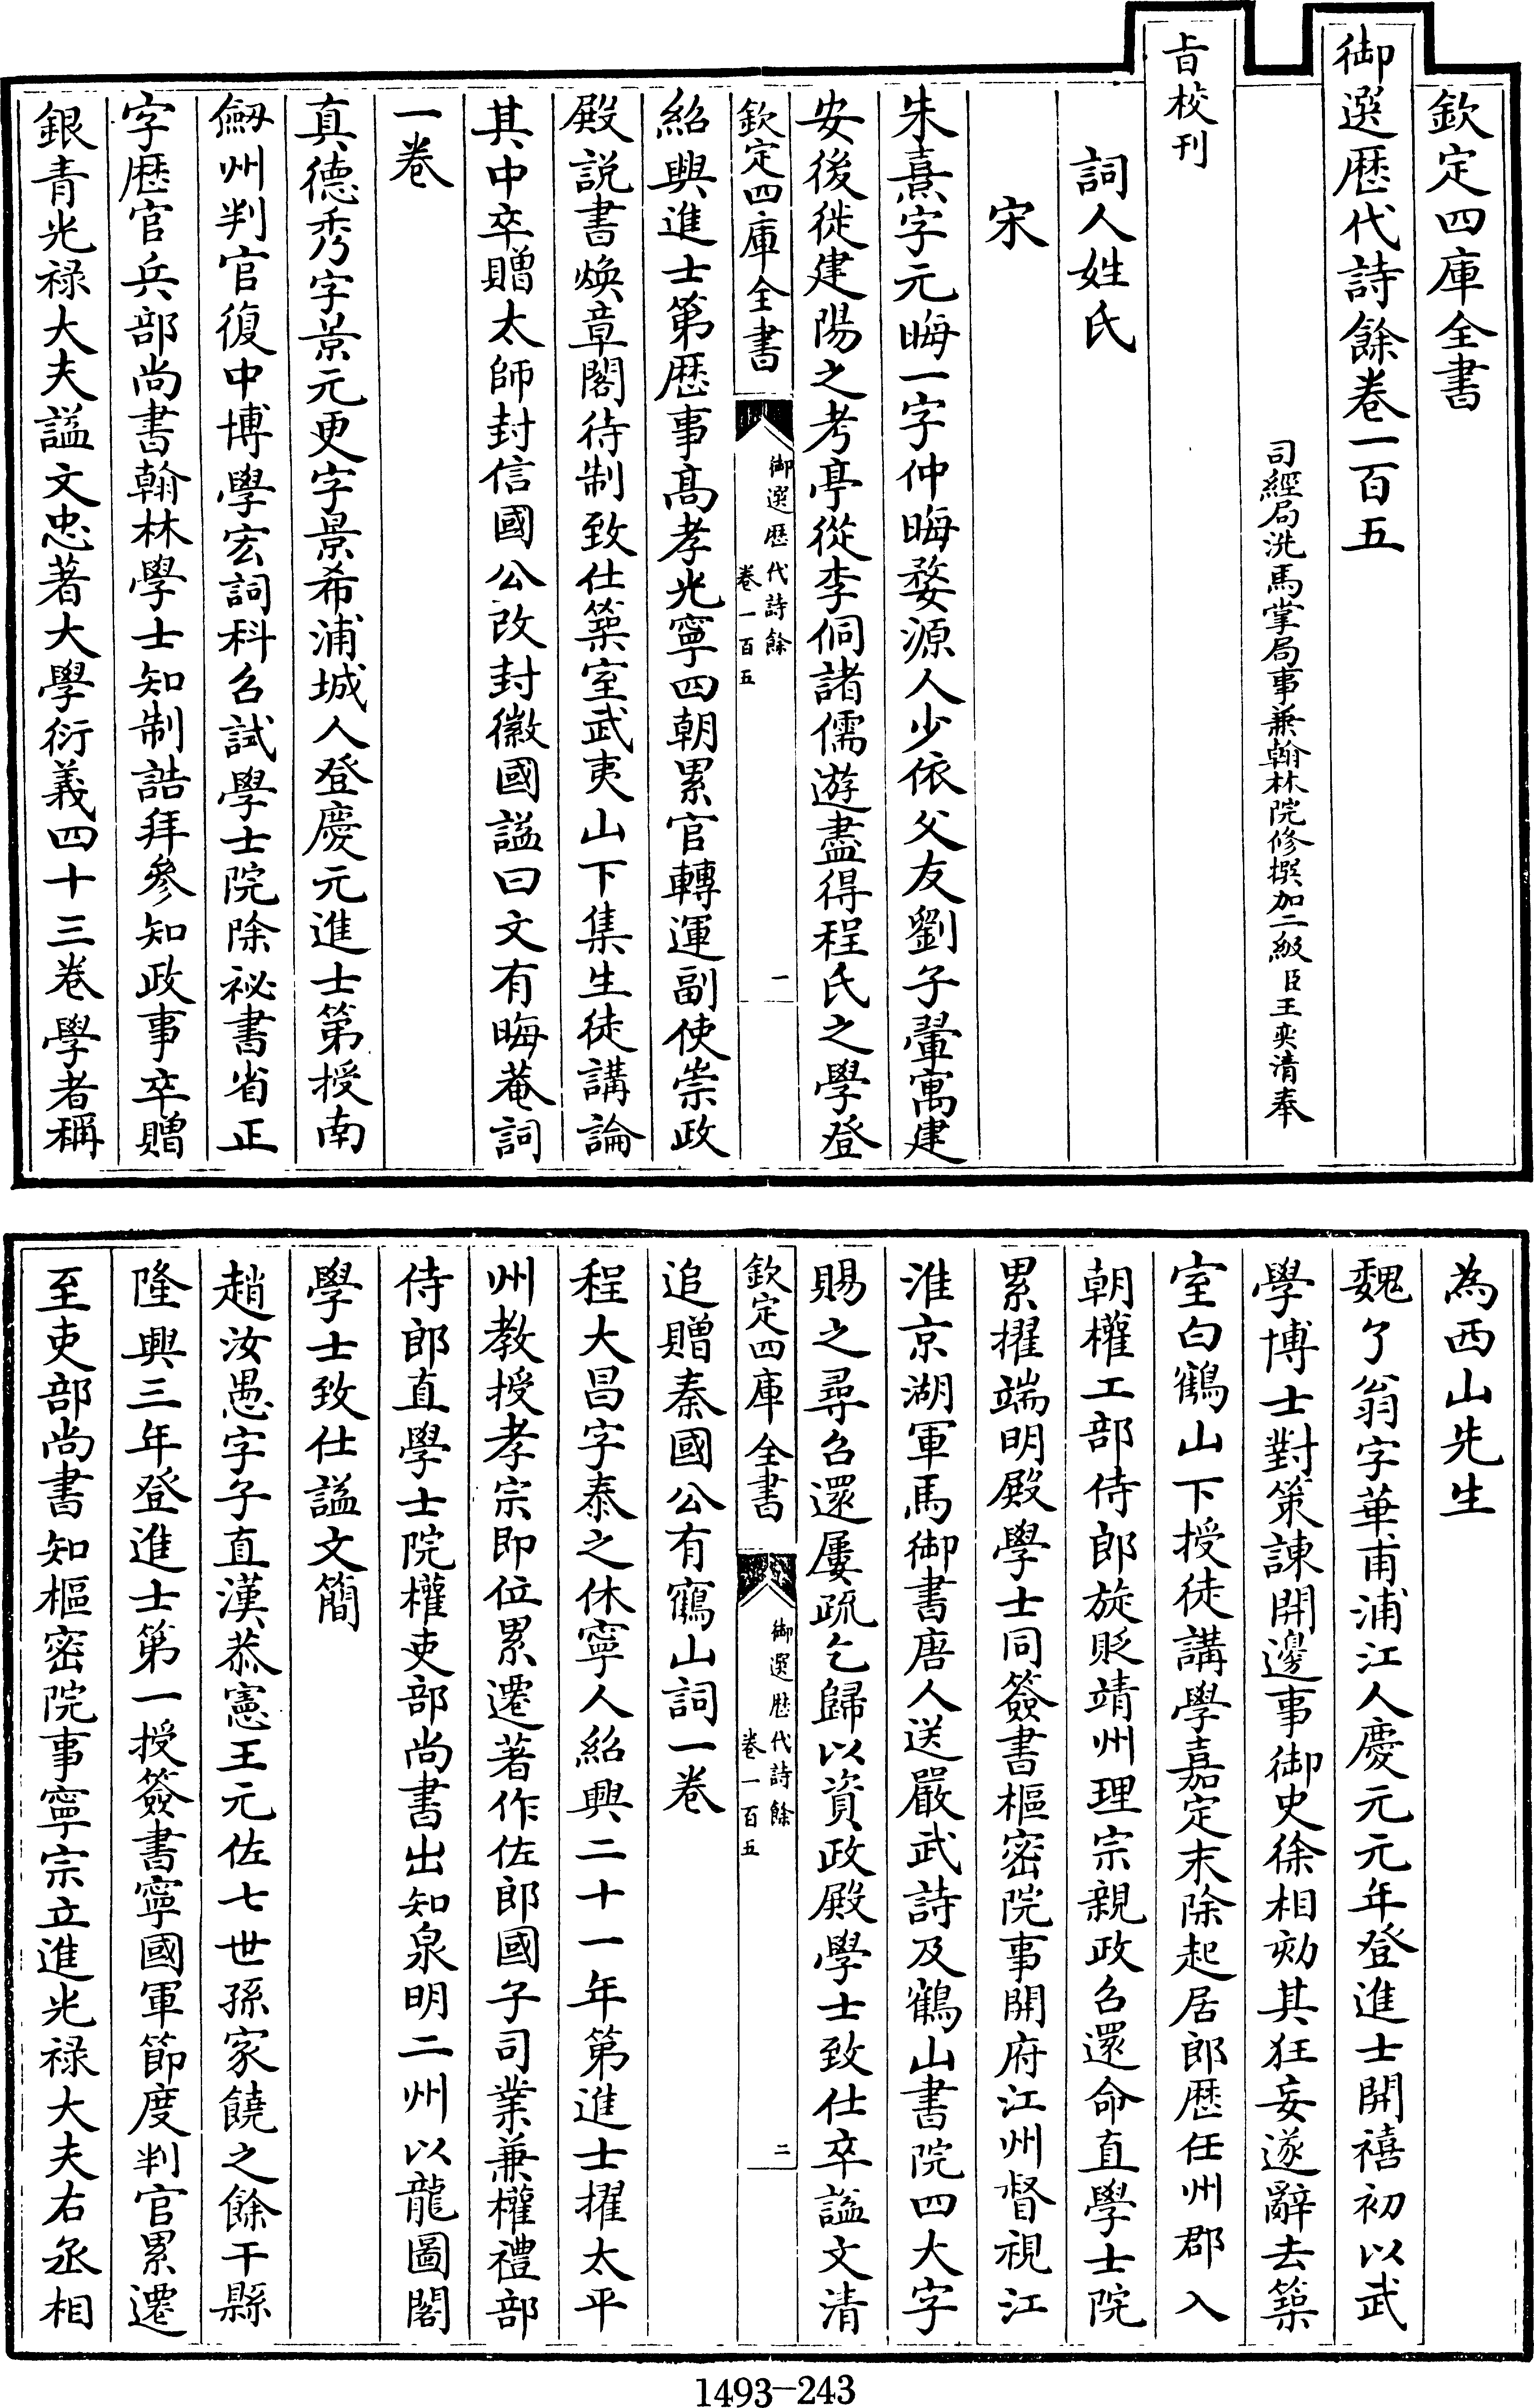 欽定四庫全書
御選歷代詩餘卷一百五
司經局洗馬掌局事兼翰林院修撰加二級臣王奕清奉
旨校刊
詞人姓氏
宋
朱熹字元晦一字仲晦婺源人少依父友劉子翬寓建
安後徙建陽之考亭從李侗諸儒遊盡得程氏之學登
欽定四庫全書
御選歷代詩餘
卷一百五
一
紹興進士第歷事髙孝光寧四朝累官轉運副使崇政
殿説書煥章閣待制致仕築室武夷山下集生徒講論
其中卒贈太師封信國公改封徽國謚曰文有晦菴詞
一卷
真德秀字景元更字景希浦城人登慶元進士第授南
劔州判官復中博學宏詞科召試學士院除祕書省正
字歷官兵部尚書翰林學士知制誥拜參知政事卒贈
銀青光禄大夫謚文忠著大學衍義四十三卷學者稱
為西山先生
魏了翁字華甫浦江人慶元元年登進士開禧初以武
學博士對策諫開邊事御史徐相劾其狂妄遂辭去築
室白鶴山下授徒講學嘉定末除起居郎歷任州郡入
朝權工部侍郎旋貶靖州理宗親政召還命直學士院
累擢端明殿學士同簽書樞密院事開府江州督視江
淮京湖軍馬御書唐人送嚴武詩及鶴山書院四大字
賜之尋召還屢疏乞歸以資政殿學士致仕卒謚文清
欽定四庫全書
御選歷代詩餘
卷一百五
二
追贈秦國公有鶴山詞一卷
程大昌字泰之休寧人紹興二十一年第進士擢太平
州教授孝宗即位累遷著作佐郎國子司業兼權禮部
侍郎直學士院權吏部尚書出知泉明二州以龍圖閣
學士致仕謚文簡
趙汝愚字子直漢恭憲王元佐七世孫家饒之餘干縣
隆興三年登進士第一授簽書寧國軍節度判官累遷
至吏部尚書知樞密院事寧宗立進光禄大夫右丞相
1493-243